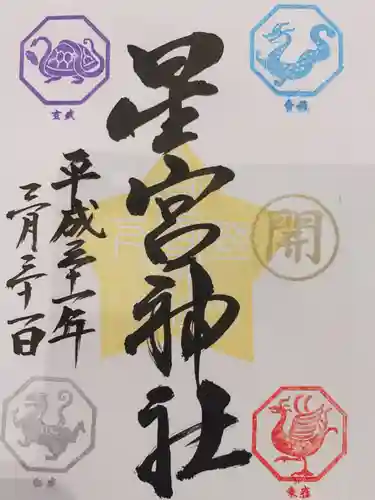 玄武
青龍
星宮神社
開
平成三十一年
三月三十一日
白虎
朱雀